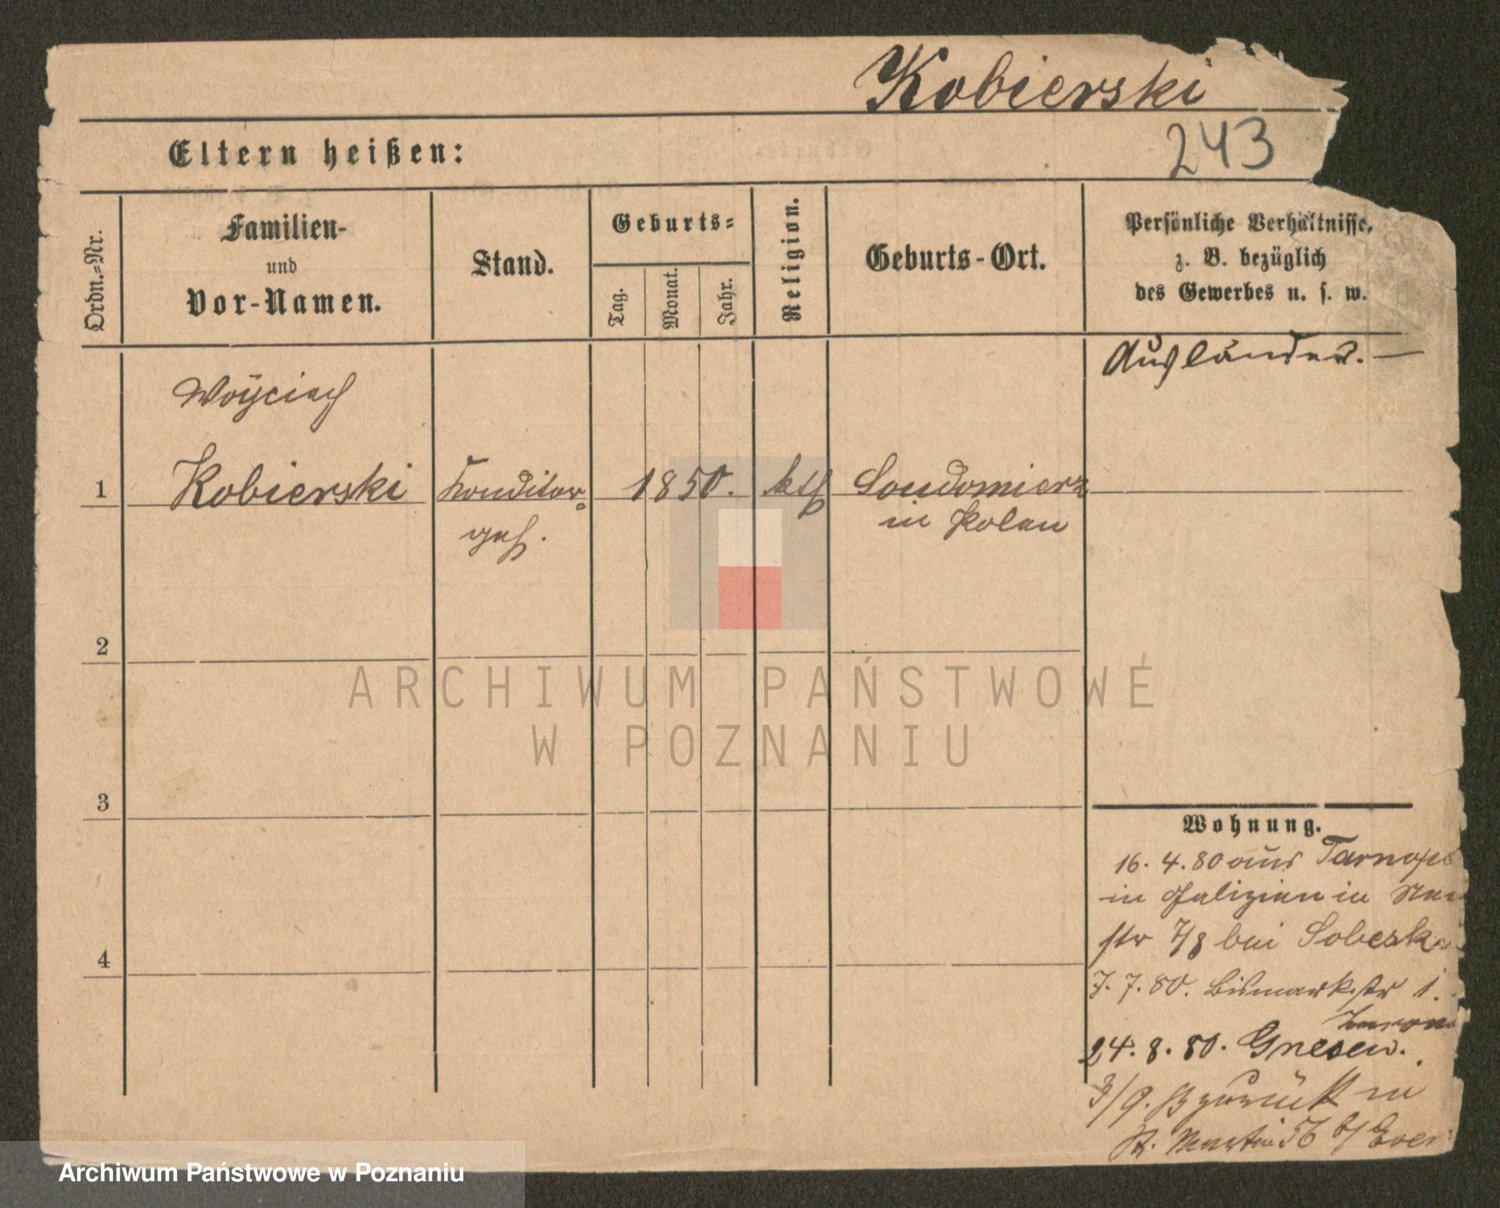 Kobierski
243
Eltern heißen:
Ordn.=Nr.
Familien-
und
Vor-Namen.
Stand.
Geburts=
Tag.
Monat.
Jahr.
Religion.
Geburts-Ort.
Persönliche Verhältnisse,
z. B. bezüglich
des Gewerbes u. s. w.
Ausländer. —
Woyciech
1 Kobierski Konditor= 1850. kth Sendomierz
geh. in Polen
2
3
4
Wohnung.
16. 4. 80 aus Tarnopol
in Galizien in
str 7/8 bei Sobeski
7. 7. 80. Bismarkstr 1.
24. 8. 80. Gnesen.
3/9. zurück in
St. Martin 56 b/
ARCHIWUM PAŃSTWOWE
W POZNANIU
Archiwum Państwowe w Poznaniu